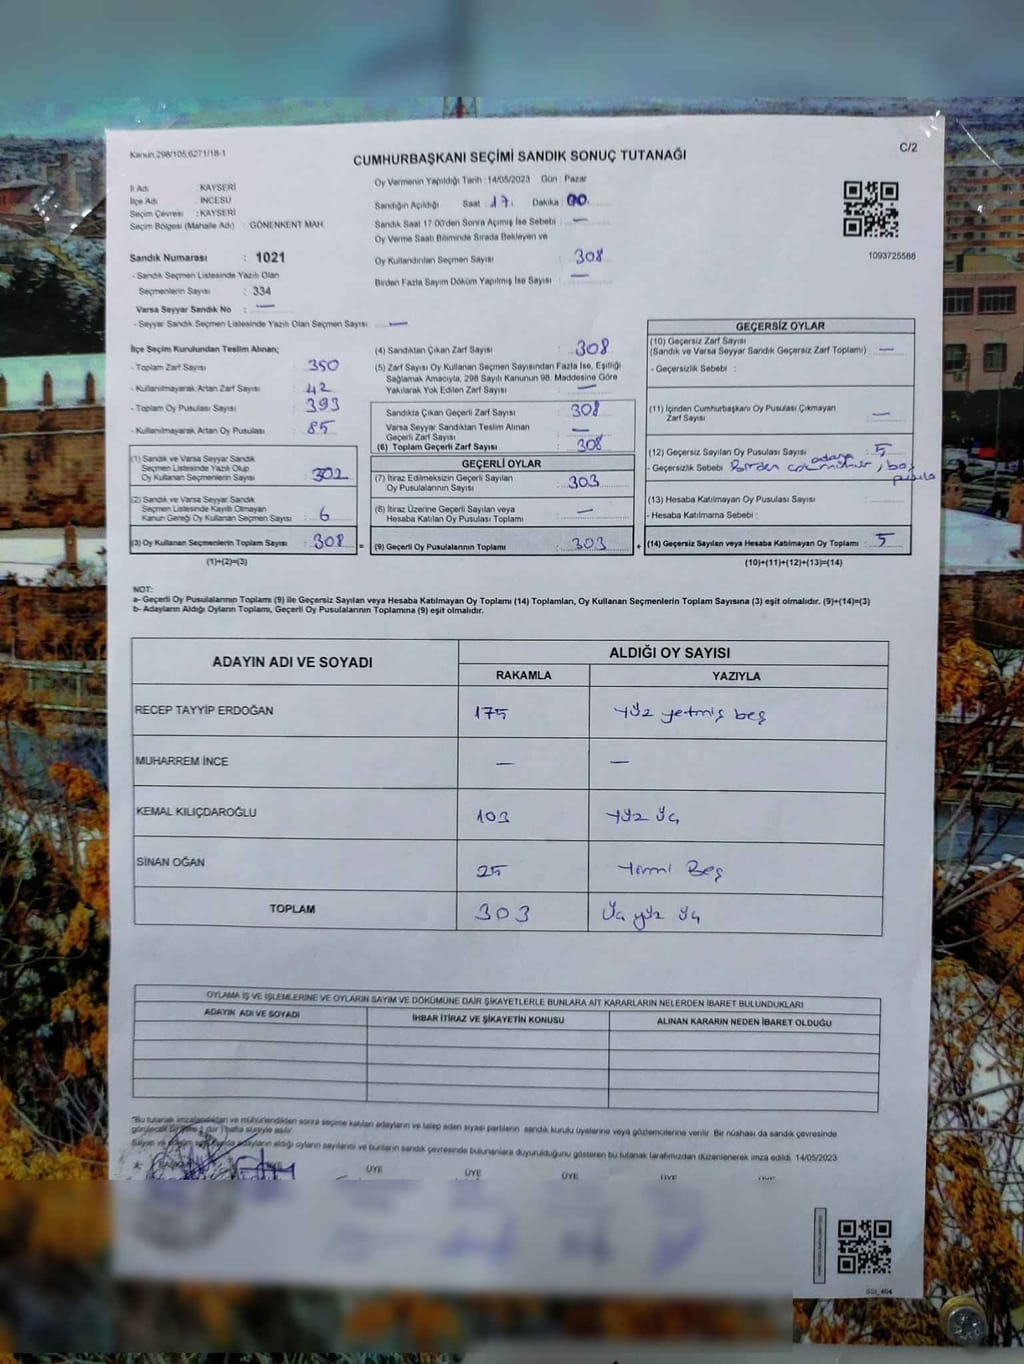 Kanun:298/105;6271/18-1
C/2
CUMHURBAŞKANI SEÇİMİ SANDIK SONUÇ TUTANAĞI
İl Adı : KAYSERİ
İlçe Adı : İNCESU
Seçim Çevresi : KAYSERİ
Seçim Bölgesi (Mahalle Adı) : GÖNENKENT MAH.
Sandık Numarası : 1021
- Sandık Seçmen Listesinde Yazılı Olan
Seçmenlerin Sayısı : 334
Varsa Seyyar Sandık No : —
- Seyyar Sandık Seçmen Listesinde Yazılı Olan Seçmen Sayısı : —
Oy Vermenin Yapıldığı Tarih : 14/05/2023 Gün : Pazar
Sandığın Açıldığı Saat : 17 Dakika : 00
Sandık Saat 17.00'den Sonra Açılmış İse Sebebi : —
Oy Verme Saati Bitiminde Sırada Bekleyen ve
Oy Kullandırılan Seçmen Sayısı : 308
Birden Fazla Sayım Döküm Yapılmış İse Sayısı : —
1093725588
İlçe Seçim Kurulundan Teslim Alınan;
- Toplam Zarf Sayısı : 350
- Kullanılmayarak Artan Zarf Sayısı : 42
- Toplam Oy Pusulası Sayısı : 393
- Kullanılmayarak Artan Oy Pusulası : 85
(1) Sandık ve Varsa Seyyar Sandık
Seçmen Listesinde Yazılı Olup
Oy Kullanan Seçmenlerin Sayısı : 302
(2) Sandık ve Varsa Seyyar Sandık
Seçmen Listesinde Kayıtlı Olmayan
Kanun Gereği Oy Kullanan Seçmen Sayısı : 6
(3) Oy Kullanan Seçmenlerin Toplam Sayısı : 308
(1)+(2)=(3)
(4) Sandıktan Çıkan Zarf Sayısı : 308
(5) Zarf Sayısı Oy Kullanan Seçmen Sayısından Fazla İse, Eşitliği
Sağlamak Amacıyla, 298 Sayılı Kanunun 98. Maddesine Göre
Yakılarak Yok Edilen Zarf Sayısı : —
Sandıkta Çıkan Geçerli Zarf Sayısı : 308
Varsa Seyyar Sandıktan Teslim Alınan
Geçerli Zarf Sayısı : —
(6) Toplam Geçerli Zarf Sayısı : 308
GEÇERLİ OYLAR
(7) İtiraz Edilmeksizin Geçerli Sayılan
Oy Pusulalarının Sayısı : 303
(8) İtiraz Üzerine Geçerli Sayılan veya
Hesaba Katılan Oy Pusulası Toplamı : —
= (9) Geçerli Oy Pusulalarının Toplamı : 303 +
GEÇERSİZ OYLAR
(10) Geçersiz Zarf Sayısı
(Sandık ve Varsa Seyyar Sandık Geçersiz Zarf Toplamı) : —
- Geçersizlik Sebebi :
(11) İçinden Cumhurbaşkanı Oy Pusulası Çıkmayan
Zarf Sayısı : —
(12) Geçersiz Sayılan Oy Pusulası Sayısı : 5
- Geçersizlik Sebebi : Birden adaya , boş
pusula
(13) Hesaba Katılmayan Oy Pusulası Sayısı :
- Hesaba Katılmama Sebebi :
(14) Geçersiz Sayılan veya Hesaba Katılmayan Oy Toplamı : 5
(10)+(11)+(12)+(13)=(14)
NOT:
a- Geçerli Oy Pusulalarının Toplamı (9) ile Geçersiz Sayılan veya Hesaba Katılmayan Oy Toplamı (14) Toplamları, Oy Kullanan Seçmenlerin Toplam Sayısına (3) eşit olmalıdır. (9)+(14)=(3)
b- Adayların Aldığı Oyların Toplamı, Geçerli Oy Pusulalarının Toplamına (9) eşit olmalıdır.
ADAYIN ADI VE SOYADI
ALDIĞI OY SAYISI
RAKAMLA YAZIYLA
RECEP TAYYİP ERDOĞAN 175 yüz yetmiş beş
MUHARREM İNCE — —
KEMAL KILIÇDAROĞLU 103 yüz üç
SİNAN OĞAN 25 yirmi Beş
TOPLAM 303 Üç yüz üç
OYLAMA İŞ VE İŞLEMLERİNE VE OYLARIN SAYIM VE DÖKÜMÜNE DAİR ŞİKAYETLERLE BUNLARA AİT KARARLARIN NELERDEN İBARET BULUNDUKLARI
ADAYIN ADI VE SOYADI İHBAR İTİRAZ VE ŞİKAYETİN KONUSU ALINAN KARARIN NEDEN İBARET OLDUĞU
*Bu tutanak imzalandıktan ve mühürlendikten sonra seçime katılan adayların ve talep eden siyasi partilerin sandık kurulu üyelerine veya gözlemcilerine verilir. Bir nüshası da sandık çevresinde
hafta süreyle asılır.
adayların aldığı oyların sayılarını ve bunların sandık çevresinde bulunanlara duyurulduğunu gösteren bu tutanak tarafımızdan düzenlenerek imza edildi. 14/05/2023
ÜYE ÜYE ÜYE ÜYE
SSI_404